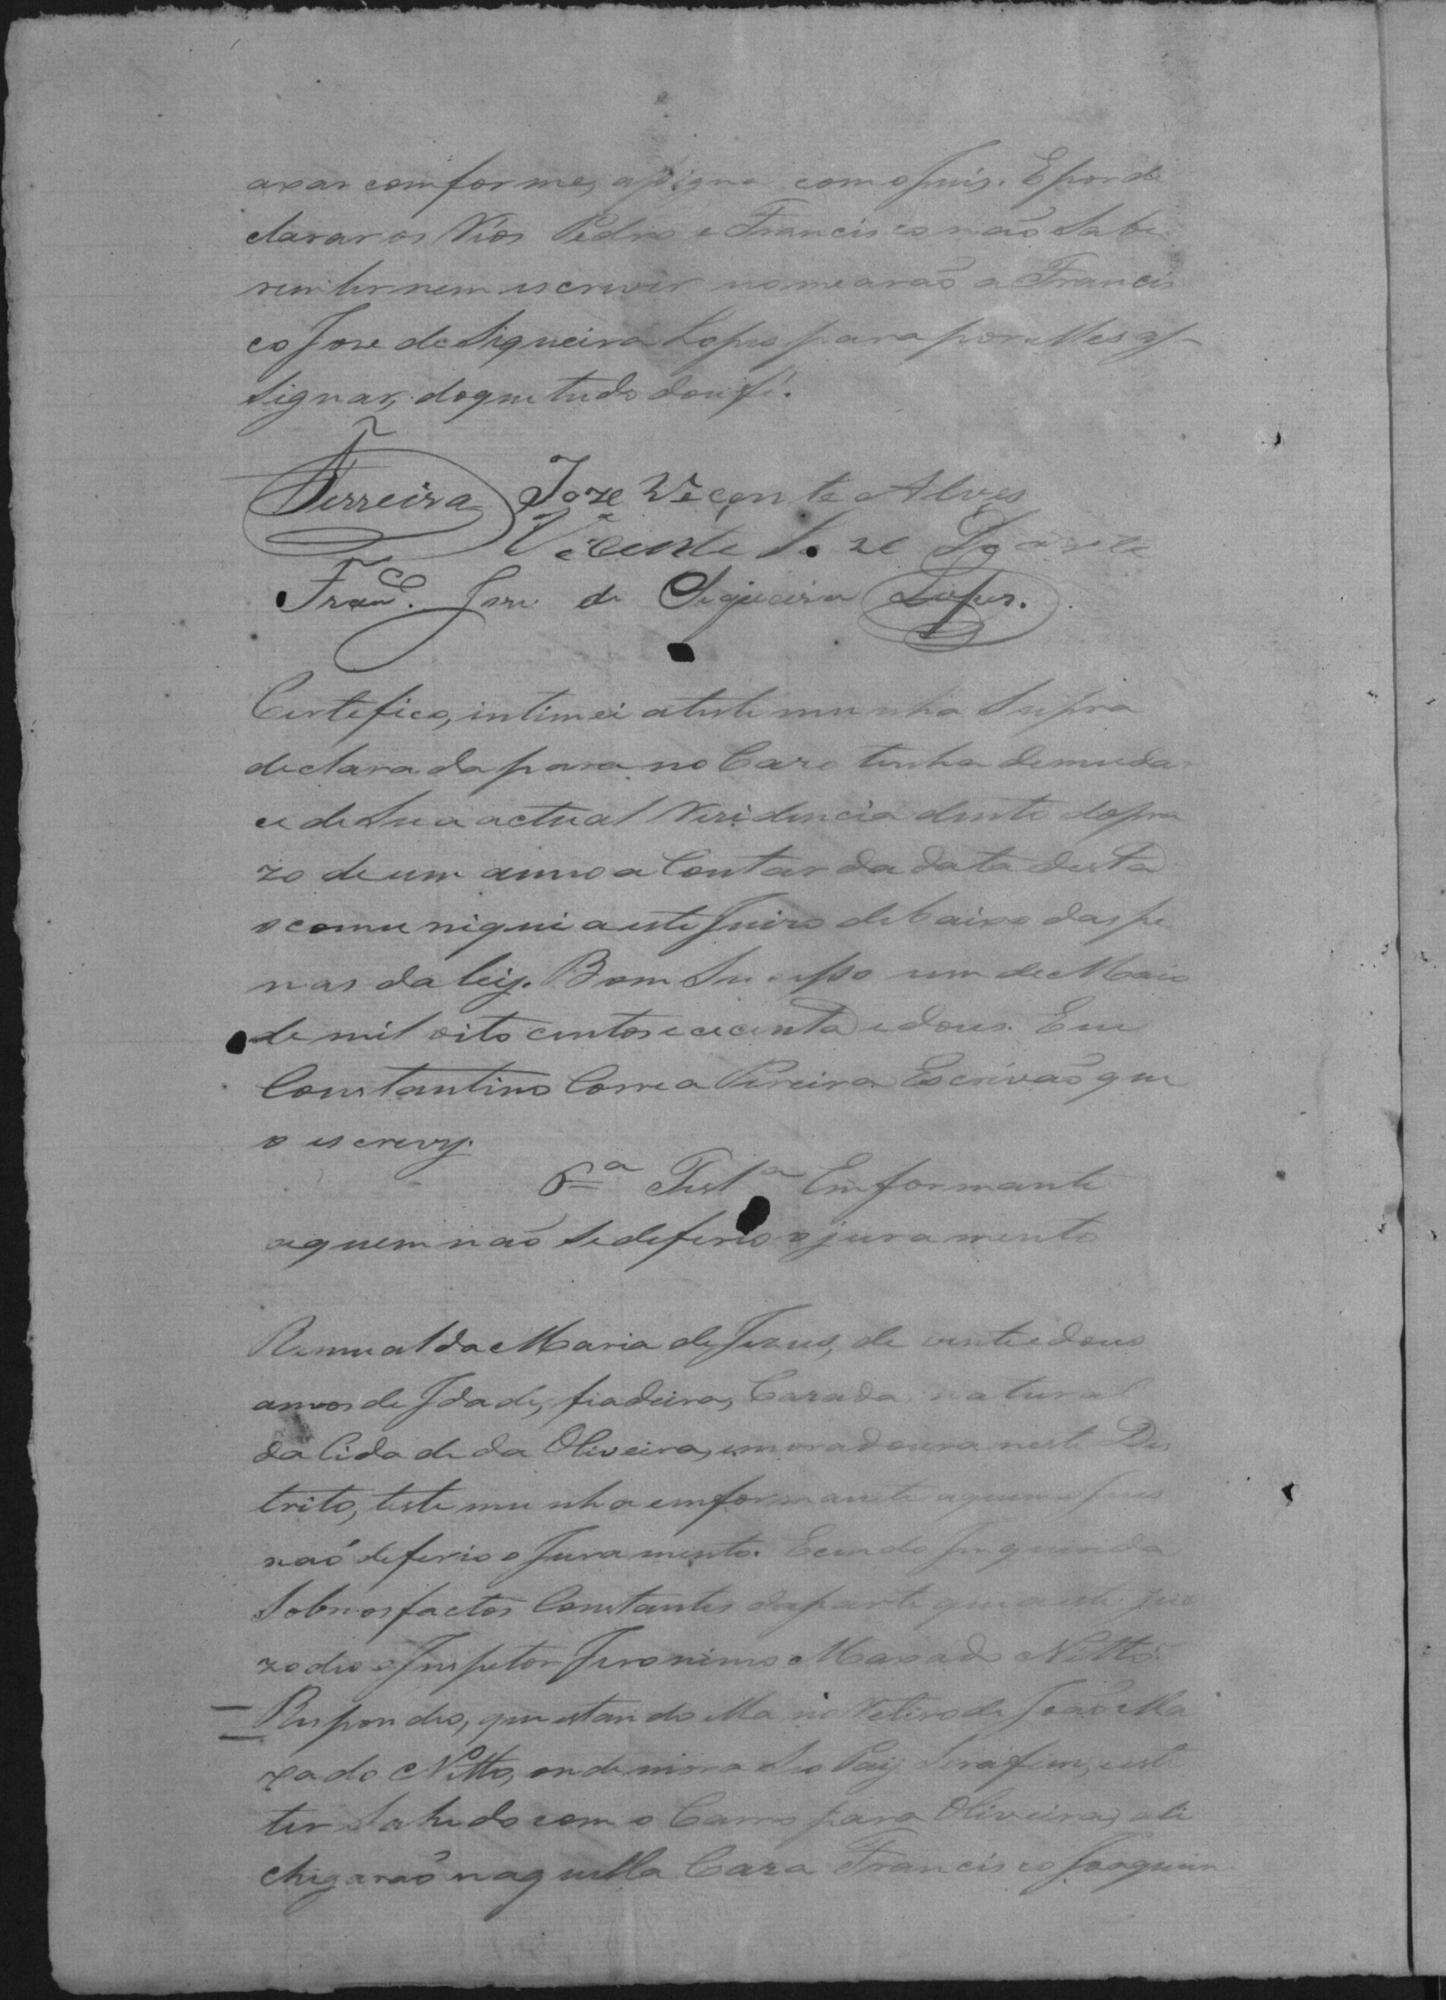 axar comforme, assigna com o Juis. E por de
clarar os Reos Pedro e Francisco não Sabe
rem ler nem escrever nomearão a Francis
co Jose de Siqueira Lopes para por elles as
signar, do que tudo dou fé.
Ferreira Joze Vicente Alves
Vicente Joze Duarte
Franco. Jose de Siqueira Lopes.
Certefico, intimei a testemunha Supra
declarada para no Cazo tenha de mudar
ce de Sua actual Rezidencia dente do pra
zo de um anno a Contar da data desta
o comunique a este Juizo debaixo das pe
nas da ley. Bom Sucesso um de Maio
de mil oito centos e cecenta e dous. Eu
Constantino Correa Pereira Escrivão que
o escrevy.
6ª Testª Emformante
a quem não se deferio o juramento
Remualda Maria de Jezus, de vinte e dous
annos de Idade, fiadeira, Cazada natural
da Cidade da Oliveira, e moradoura neste Des
trito, testemunha emformante a quem o Juis
não deferio o Juramento. E cendo Inquerida
Sobre os factos Constantes da parte que a este Jui
zo deo o Inspetor Jeronimo Maxado Netto.
Respondeo, que estando ella no Retiro de João Ma
xado Netto, onde mora Seo Pay Serafim, este
ter Sahido com o Carro para Oliveira, ali
chegarão naquella Caza Francisco Joaquim